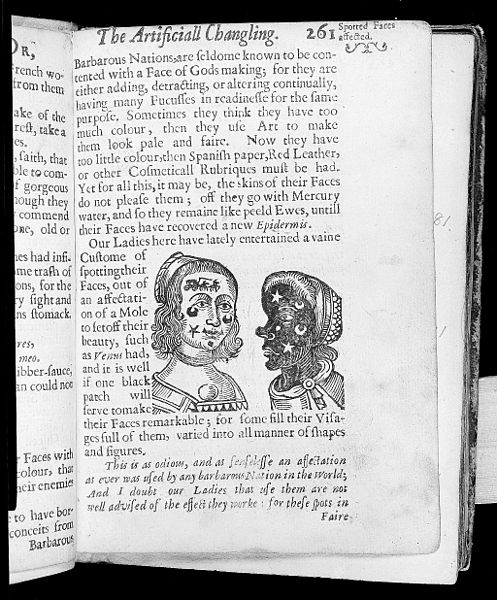 OR,
rench wo-
from them
ake of the
reſt, take a
es.
, ſaith, that
ble to com-
f gorgeous
hough they
commend
one, old or
nes had infi-
me traſh of
ons, for the
ry ſight and
ns ſtomack.
res,
meo.
ibber-ſauce,
an could not
r Faces with
colour, that
heir enemies
e to have bor-
conceits from
Barbarous
The Artificiall Changling. 261
Spotted Faces
affected.
Barbarous Nations, are ſeldome known to be con-
tented with a Face of Gods making; for they are
either adding, detracting, or altering continually,
having many Fucuſſes in readineſſe for the ſame
purpoſe. Sometimes they think they have too
much colour, then they uſe Art to make
them look pale and faire. Now they have
too little colour, then Spaniſh paper, Red Leather,
or other Coſmeticall Rubriques muſt be had.
Yet for all this, it may be, the skins of their Faces
do not pleaſe them; off they go with Mercury
water, and ſo they remaine like peeld Ewes, untill
their Faces have recovered a new Epidermis.
Our Ladies here have lately entertained a vaine
Cuſtome of
ſpotting their
Faces, out of
an affectati-
on of a Mole
to ſet off their
beauty, ſuch
as Venus had,
and it is well
if one black
patch will
ſerve to make
their Faces remarkable; for ſome fill their Viſa-
ges full of them, varied into all manner of ſhapes
and figures.
This is as odious, and as ſenſeleſſe an affectation
as ever was uſed by any barbarous Nation in the World;
And I doubt our Ladies that uſe them are not
well adviſed of the effect they worke: for theſe ſpots in
Faire
81